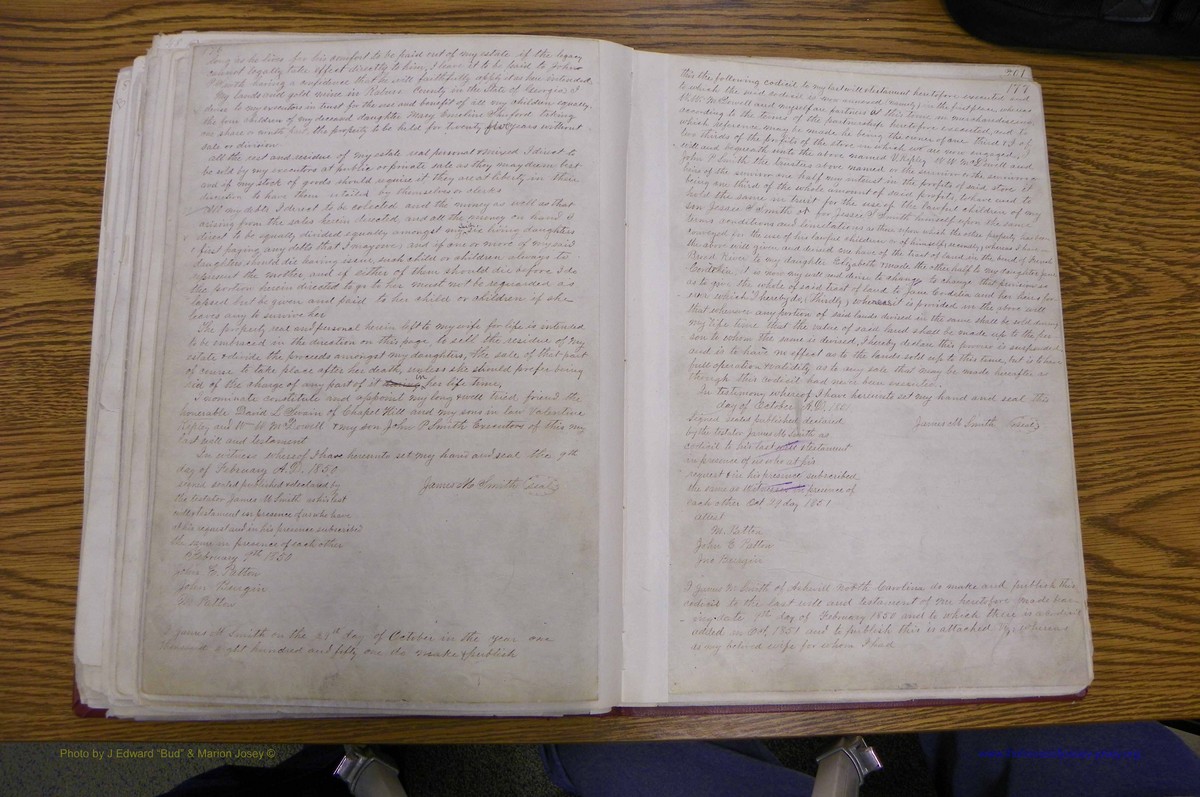 long as he lives for his comfort to be paid out of my estate if the legacy
cannot legally take effect directly to him, I leave it to be paid to John
having confidence that he will faithfully apply it as here intended.
My lands and gold mine in Rabun County in the State of Georgia, I
devise to my executors in trust for the use and benefit of all my children equally,
the four children of my deceased daughter Mary taking
one share a ninth for the property to be held for twenty five years without
sale or division
all the rest and residue of my estate real personal & mixed I direct to
be sold by my executors at public or private sale as they may deem best
and if my stock of goods should require it they are at liberty in their
discretion to have them by themselves or clerks
All my debts I direct to be collected and the money as well as that
arising from the sales herein directed and all the money on hand I
direct to be equally divided equally amongst my six living daughters
first paying any debts that I may owe; and if one or more of my said
daughters should die having issue, such child or children always to
represent the mother and if either of them should die before I do
the portion herein directed to go to her must not be regarded as
lapsed but be given and paid to her child or children if she
leaves any to survive her
The property real and personal herein left to my wife for life is intended
to be embraced in the direction on this page, to sell the residue of my
estate & divide the proceeds amongst my daughters, the sale of that part
of course to take place after her death, unless she should prefer being
rid of the charge of any part of it in her life time,
I nominate constitute and appoint my long & well tried friend the
honorable David L Swain of Chapel Hill and my sons in law Valentine
Ripley and Wm W McDowell & my son John P Smith Executors of this my
last will and testament
In witness whereof I have hereunto set my hand and seal the 9th
day of February A.D. 1850
signed sealed published & declared by
James M Smith (seal)
the testator James M Smith as his last
will & testament in presence of us who have
at his request and in his presence subscribed
the same in presence of each other
February 9th 1850
John E. Patton
John Burgin
M Patton
I James M Smith on the 29th day of October in the year one
thousand eight hundred and fifty one do make & publish
201
177
this the following codicil to my last will & testament heretofore executed and
to which the said codicil is now annexed (namely) in the first place, whereas
W.W. McDowell and myself are partners at this time in merchandising
according to the terms of the partnership heretofore executed, and to
which reference may be made he being the owner of one third & I of
two thirds of the profits of the store in which we are now engaged, I
will and bequeath unto the above named V Ripley W W McDowell and
John P Smith the trustees above named or the survivor or the survivors
heirs of the survivor one half my interest in the profits of said store it
being one third of the whole amount of said profits, to have and to
hold the same in trust for the use of the lawful children of my
son Jesse S Smith or for Jesse S Smith himself upon the same
terms conditions and limitations as those upon which the other property has been
conveyed for the use of his lawful children or of himself; secondly, whereas I have
the above will given and devised one half of the tract of land in the bend of French
Broad River to my daughter Elizabeth & made the other half to my daughter Jane
it is now my will and desire to change to change that provision so
as to give the whole of said tract of land to Jane and her heirs for-
ever which I hereby do; Thirdly & whereas it is provided in the above will
that whenever any portion of said lands devised in the same shall be sold during
my life time that the value of said land shall be made up to the per
son to whom the same is devised, I hereby declare this proviso is suspended
and is to have no effect as to the lands sold up to this time, but is to have
full operation & validity as to any sale that may be made hereafter as
though this codicil had never been executed.
In testimony whereof I have hereunto set my hand and seal this
day of October A.D. 1851
Signed sealed published declared
James M Smith (seal)
by the testator James M Smith as
codicil to his last will & testament
in presence of us who at his
request & in his presence subscribed
the same as witnesses in presence of
each other Oct 29 day 1851
attest
M. Patton
John E Patton
Jno Burgin
I James M Smith of Ashvill North Carolina do make and publish this
codicil to the last will and testament of me heretofore made bear-
ing date 9th day of February 1850 and to which there is a codicil
added in Oct, 1851 and to publish this is attached whereas
as my beloved wife for whom I had
Photo by J Edward "Bud" & Marion Josey ©